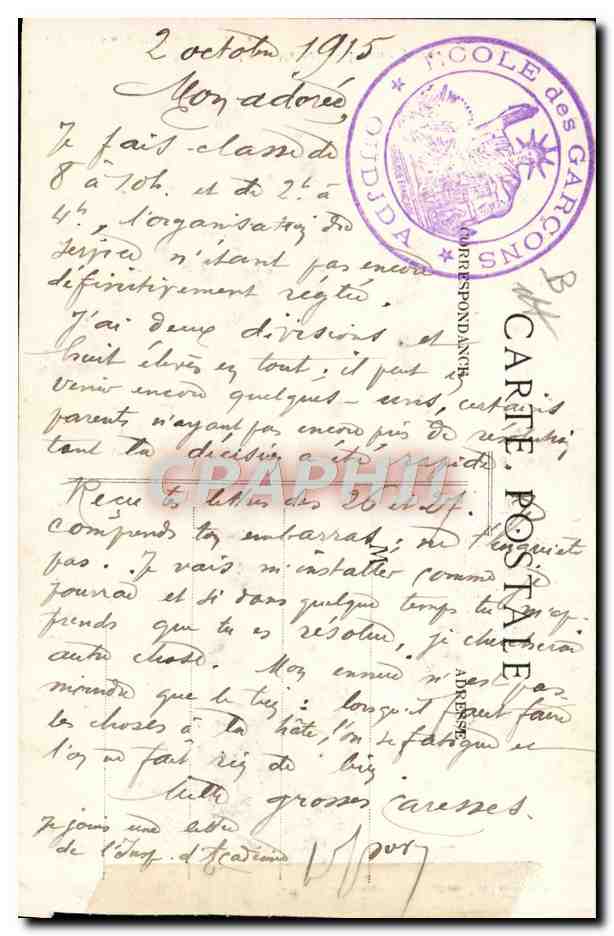 2 octobre 1915
Mon adorée,
Je fais classe de
8 à 10h. et de 2h. à
4h, l'organisation du
service n'étant pas encore
définitivement réglée.
J'ai deux divisions et
huit élèves en tout ; il peut en
venir encore quelques-uns, certains
parents n'ayant pas encore pris de résolution
tant la décision a été rapide
Reçu tes lettres des 26 et 27.
comprends ton embarras ; ne t'inquiète
pas. Je vais m'installer comme je
pourrai et si dans quelque temps tu m'ap-
prends que tu es résolue, je chercherai
autre chose. Mon ennui n'est pas
moindre que le tien : lorsqu'il faut faire
les choses à la hâte, l'on se fatigue et
l'on ne fait rien de bien
Mille grosses caresses.
Je joins une lettre
de l'Insp. d'Académie
ÉCOLE des GARÇONS
OUDJDA
B
CARTE POSTALE
CORRESPONDANCE
ADRESSE
M
CPAPHIL